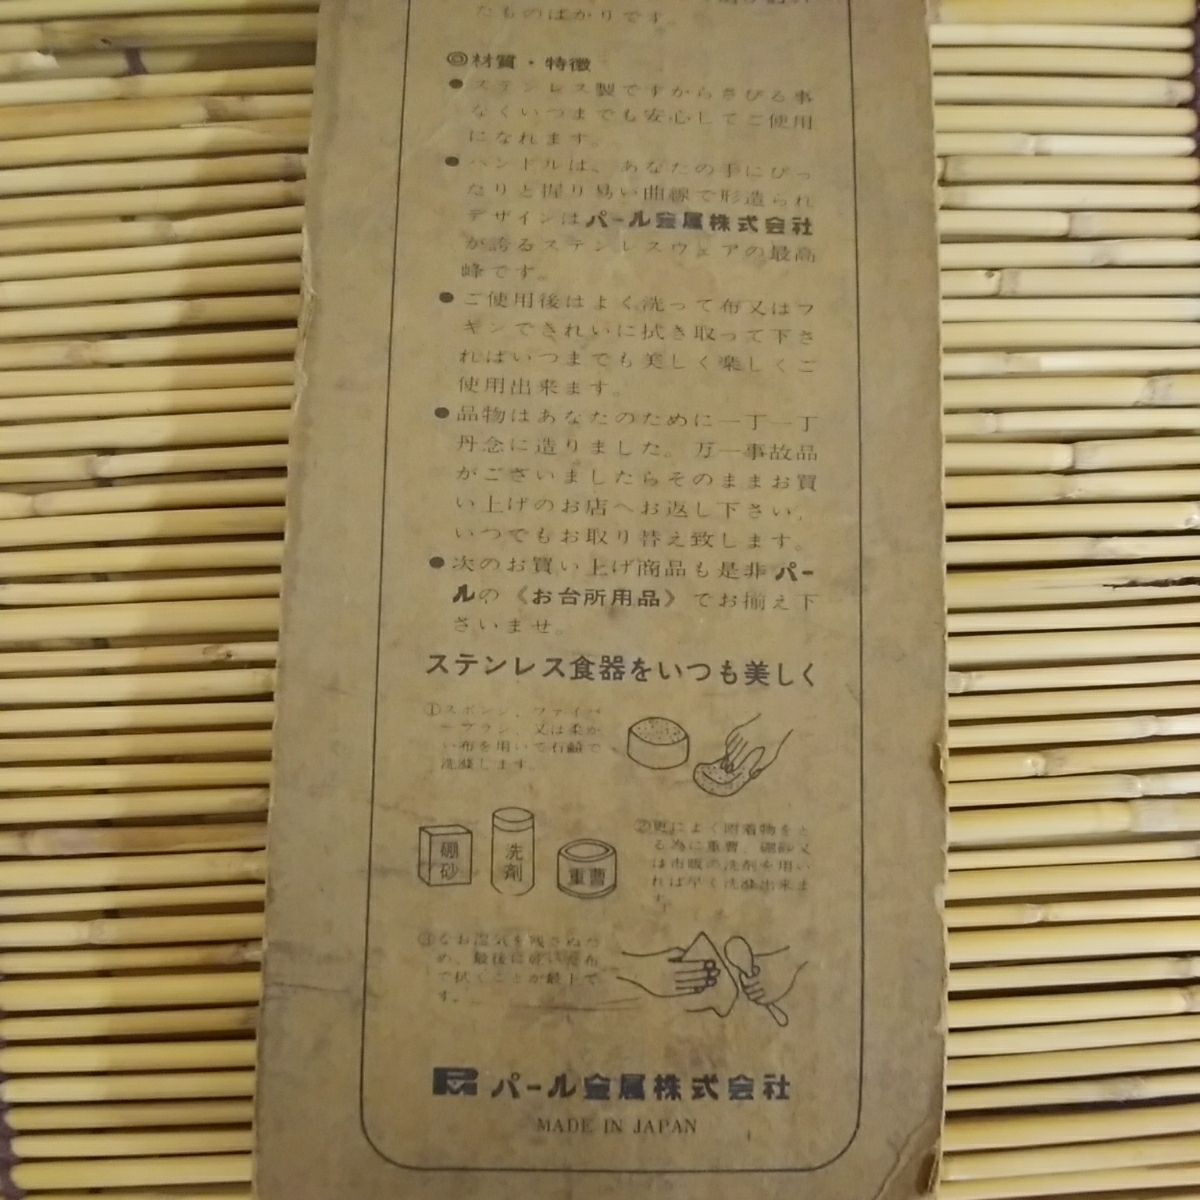 たものばかりです。
◎材質・特徴
●ステンレス製ですからさびる事
なくいつまでも安心してご使用
になれます。
●ハンドルは、あなたの手にぴっ
たりと握り易い曲線で形造られ
デザインはパール金属株式会社
が誇るステンレスウェアの最高
峰です。
●ご使用後はよく洗って布又はフ
キンできれいに拭き取って下さ
ればいつまでも美しく楽しくご
使用出来ます。
●品物はあなたのために一丁一丁
丹念に造りました。万一事故品
がございましたらそのままお買
い上げのお店へお返し下さい。
いつでもお取り替え致します。
●次のお買い上げ商品も是非パー
ルの《お台所用品》でお揃え下
さいませ。
ステンレス食器をいつも美しく
①スポンジ、ファイバ
ーブラシ、又は柔か
い布を用いて石鹼で
洗滌します。
硼砂
洗剤
重曹
②更によく附着物をと
る為に重曹、硼砂又
は市販の洗剤を用い
れば早く洗滌出来ま
す。
③なお湿気を残さぬた
め、最後に乾いた布
で拭くことが最上で
す。
パール金属株式会社
MADE IN JAPAN